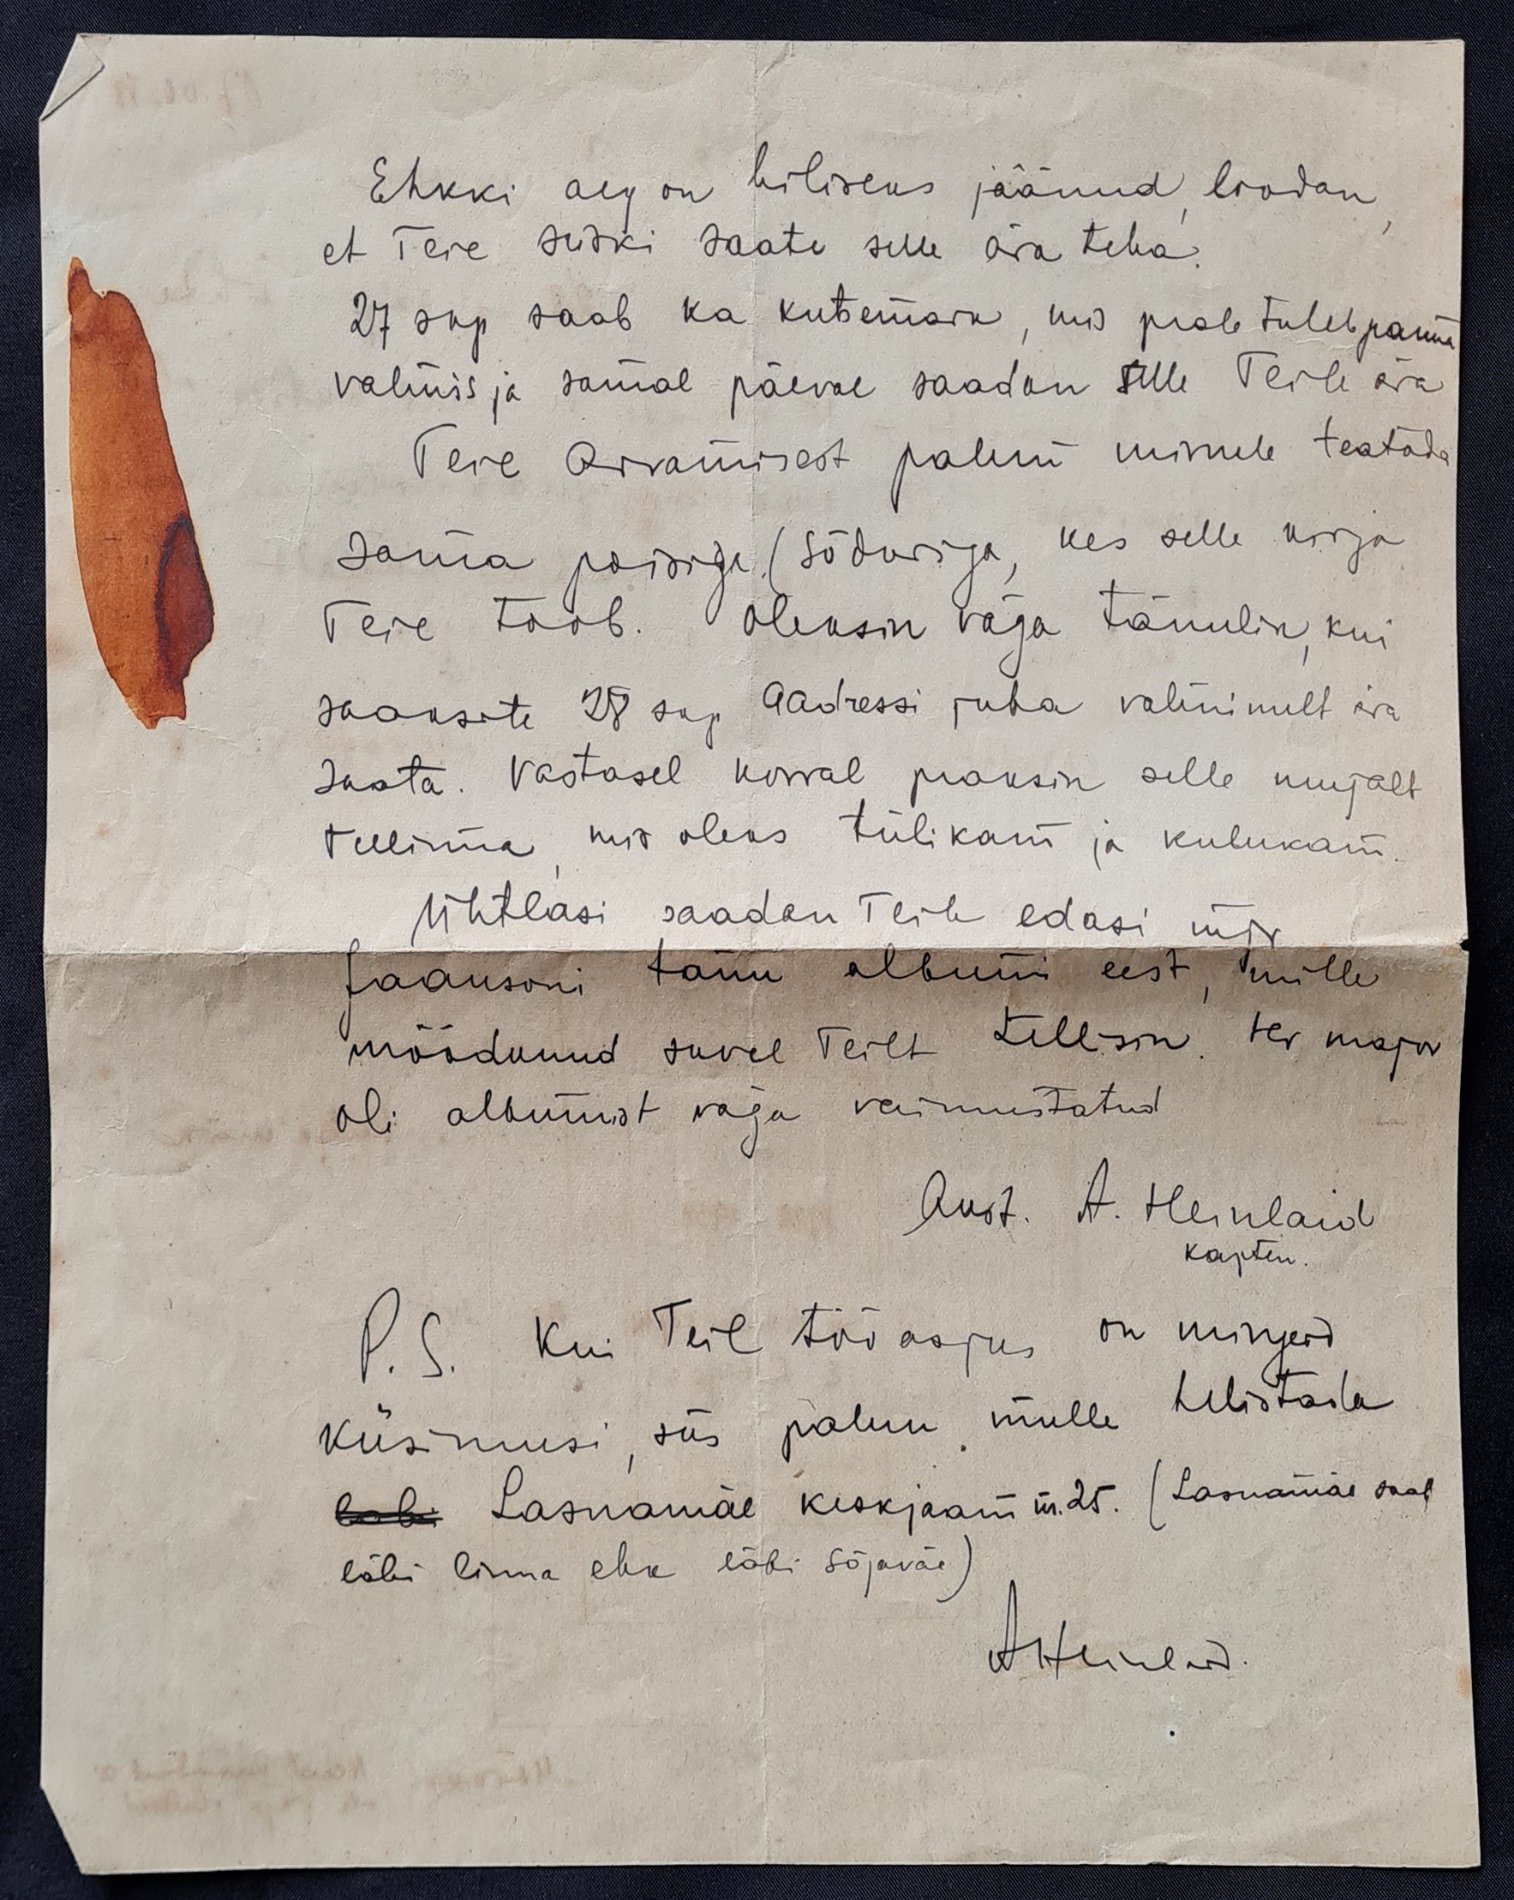 Ehkki aeg on hiliseks jäänud, loodan,
et Teie siiski saate selle ära teha.
27 sep saab ka kutsemärk, mis peale tuleb panna
valmis ja samal päeval saadan selle Teile ära
Teie arvamisest palun minule teatada
sama poisiga (sõduriga, kes selle kirja
Teie toob. Oleksin väga tänulik, kui
saaksite 28 sep aadressi juba valminult ära
saata. Vastasel korral peaksin selle mujalt
tellima, mis oleks tülikam ja kulukam.
Ühtlasi saadan Teile edasi mjr
Jaansoni tänu albumi eest, mille
möödunud suvel Teilt tellisin. Hr major
oli albumist väga vaimustatud
Aust. A. Heinlaid
kapten.
P.S. Kui Teil töö asjus on mingeid
küsimusi, siis palun mulle helistada
Lasnamäe keskjaam nr. 25. (Lasnamäe saab
läbi linna ehk läbi sõjaväe)
AHeinlaid.